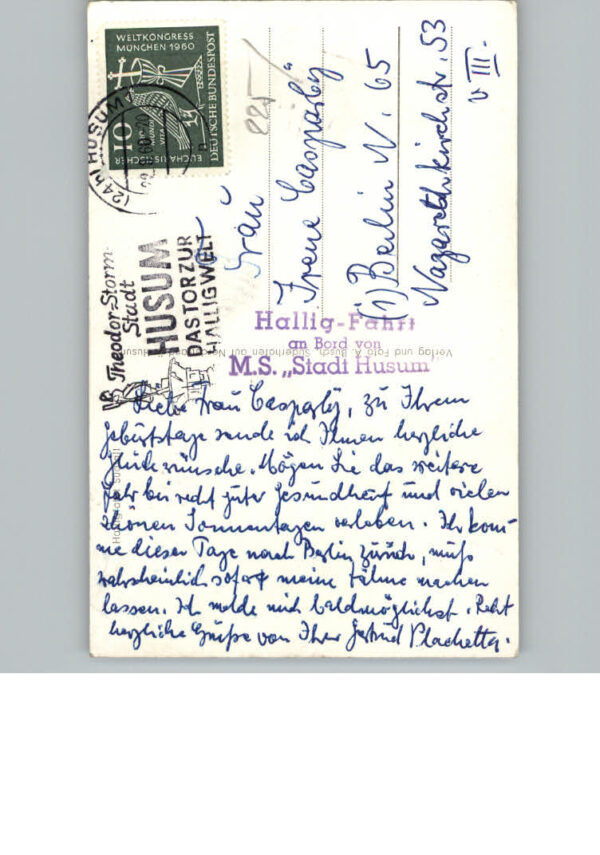 WELTKONGRESS
MÜNCHEN 1960
EUCHARISTISCHER
10
PRO MUNDI VITA
DEUTSCHE BUNDESPOST
(24b) HUSUM
Theodor-Storm-
Stadt
HUSUM
DAS TOR ZUR
HALLIGWELT
225
Frau
Irene Casparÿ
(1) Berlin N. 65
Nazarethkirchstr. 53
v III.
Hallig-Fahrt
an Bord von
M.S. „Stadt Husum"
Verlag und Foto A. Busch, Süderhafen auf Nordstrand
Liebe Frau Casparÿ, zu Ihrem
Geburtstage sende ich Ihnen herzliche
Glückwünsche. Mögen Sie das weitere
Jahr bei recht guter Gesundheit und vielen
schönen Sonnentagen verleben. Ich kom-
me dieser Tage nach Berlin zurück, muß
wahrscheinlich sofort meine Zähne machen
lassen. Ich melde mich baldmöglichst. Recht
herzliche Grüße von Ihrer Gertrud Plachetta.